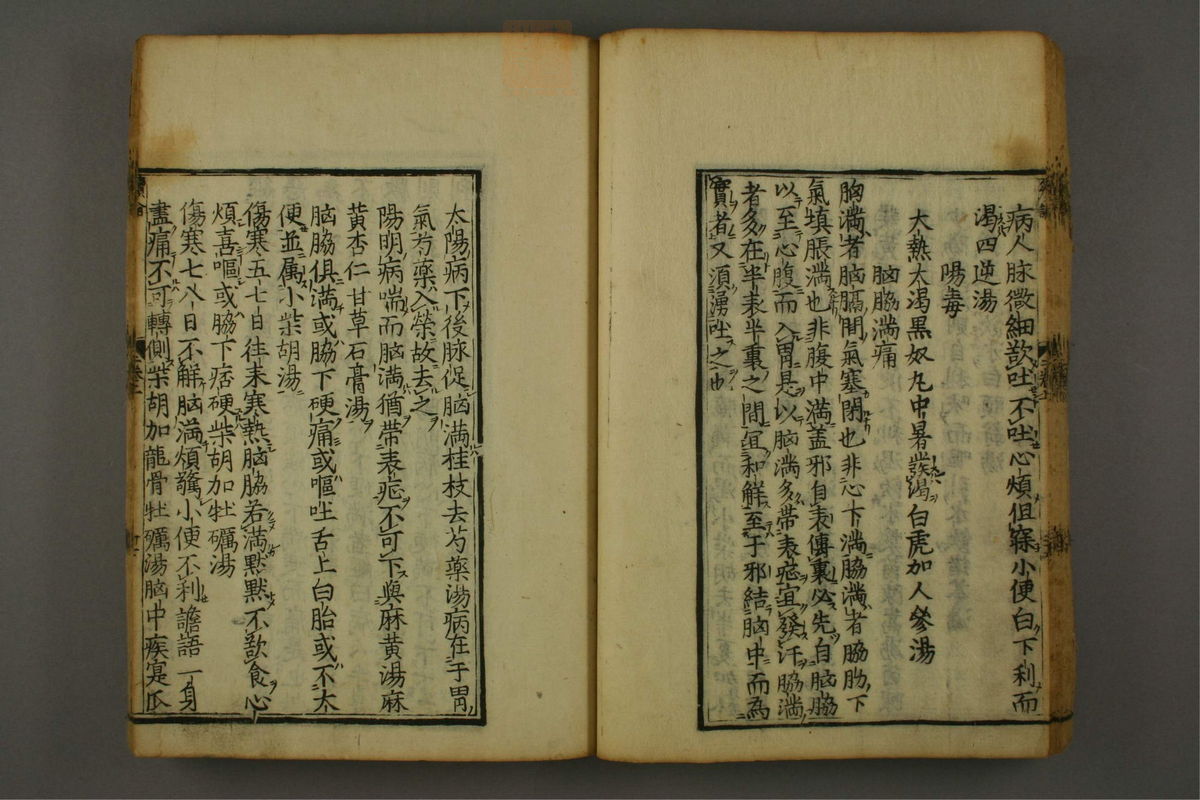 病人脉微細欲吐不吐心煩但寐小便白下利而
渴四逆湯
陽毒
大熱大渴黑奴丸中暑發渴白虎加人參湯
胸脇滿痛
胸滿者胸膈間氣塞閉也非心下滿脇滿者脇肋下
氣填脹滿也非腹中滿蓋邪自表傳裏必先自胸脇
以至心腹而入胃是以胸滿多帶表症宜發汗脇滿
者多在半表半裏之間宜和解至于邪結胸中而為
實者又須湧吐之也
太陽病下後脉促胸滿桂枝去芍藥湯病在于胃
氣芍藥入榮故去之
陽明病喘而胸滿猶帶表症不可下與麻黃湯麻
黃杏仁甘草石膏湯
胸脇俱滿或脇下硬痛或嘔吐舌上白胎或不大
便並属小柴胡湯
傷寒五七日往来寒熱胸脇若滿默默不欲食心
煩喜嘔或脇下痞硬柴胡加牡礪湯
傷寒七八日不解胸滿煩驚小便不利譫語一身
盡痛不可轉側柴胡加龍骨牡礪湯胸中痰寔瓜